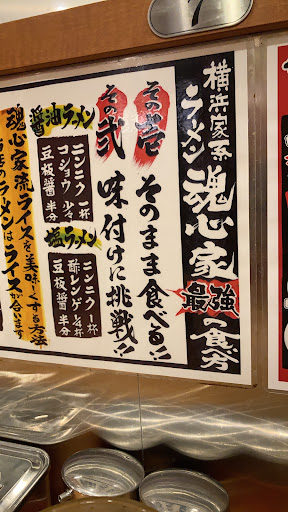 7
横浜家系
ラーメン魂心家
最強の食べ方
その壱
そのまま食べる!!
その弐
味付けに挑戦!!
醤油ラーメン
ニンニク 一杯
コショウ 少々
豆板醤 半分
塩ラーメン
ニンニク 一杯
酢レンゲ
豆板醤 半分
魂心家流ライスを美味しくする方法
ラーメンはライスが合います